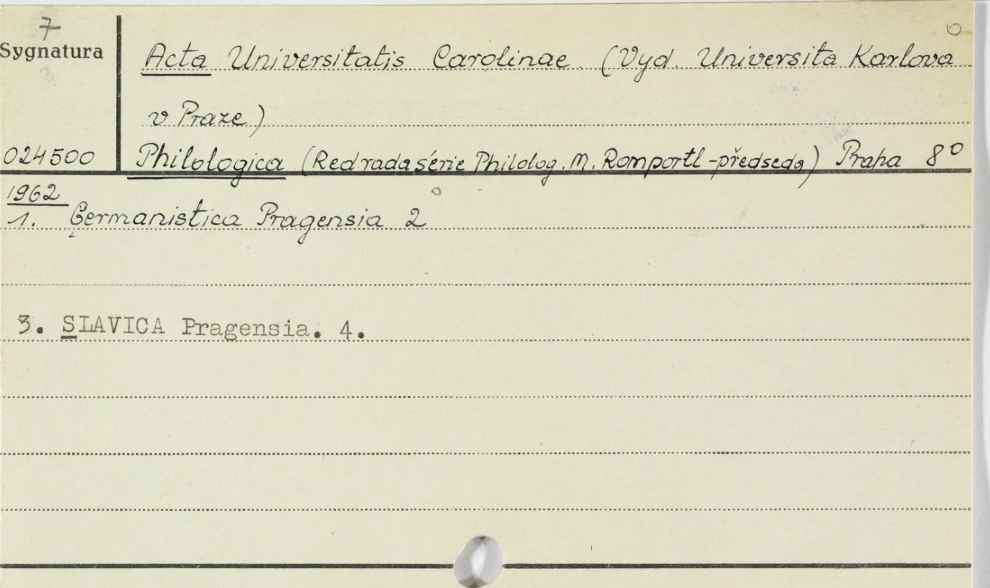 7
Sygnatura
Acta Universitatis Carolinae (Vyd. Universita Karlova
v Praze)
024500
Philologica (Red rada série Philolog. M. Romportl - předseda) Praha 8°
1962
1. Germanistica Pragensia 2
3. SLAVICA Pragensia. 4.